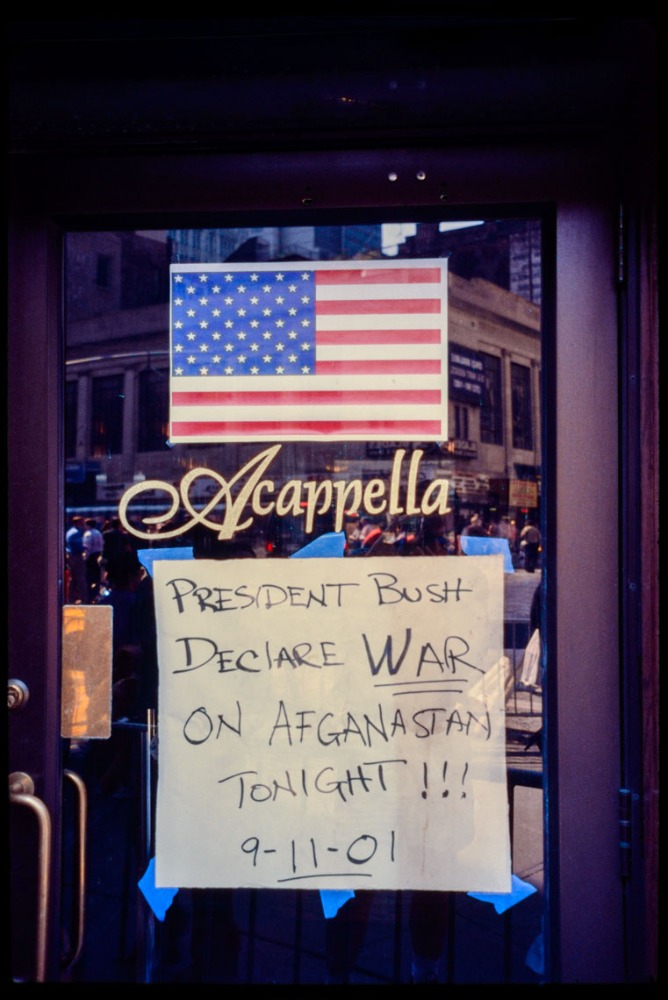 Acappella
PRESIDENT BUSH
DECLARE WAR
ON AFGANASTAN
TONIGHT !!!
9-11-01